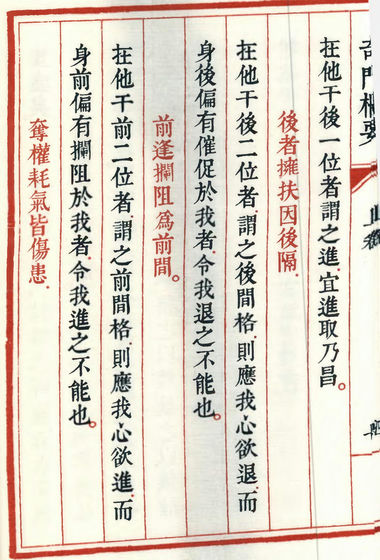 奇門樞要
在他干後一位者。謂之進。宜進取乃昌。
後者擁扶因後隔.
在他干後二位者。謂之後間格。則應我心欲退。而
身後偏有催促於我者。令我退之不能也。
前逢攔阻為前間。
在他干前二位者。謂之前間格。則應我心欲進。而
身前偏有攔阻於我者。令我進之不能也。
奪權耗氣皆傷患.